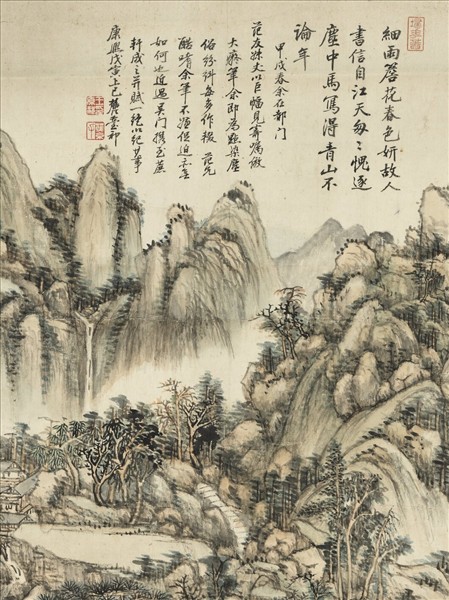 細雨簷花春色妍故人
書信自江天愧逐
塵中馬寫得青山不
論年
甲戌春余在都門
范友丈以巨幅見寄囑倣
大癡筆余即為點染塵
俗紛糾每多作輟范先
酷嗜余筆不促迫
如何也近過吳門携至蔗
軒成之并賦一絕以紀其事
康熙戊寅上巳麓臺祁